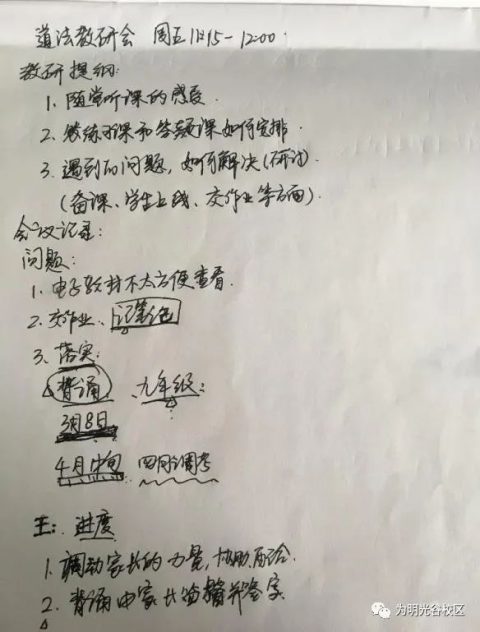 道法教研会 周五11:15-12:00.
教研提纲:
1. 随堂听课的感受.
2. 练习课和答疑课如何安排
3. 遇到的问题, 如何解决(研讨).
(备课、学生上线、交作业等方面).
会议记录:
问题:
1. 电子教材不太方便查看.
2. 交作业、记笔记
3. 落实:
背诵 、九年级:
3月8日
4月中旬 四月调考
王: 进度
1. 调动家长的力量, 协助配合.
2. 背诵由家长并签字.
为明光谷校区